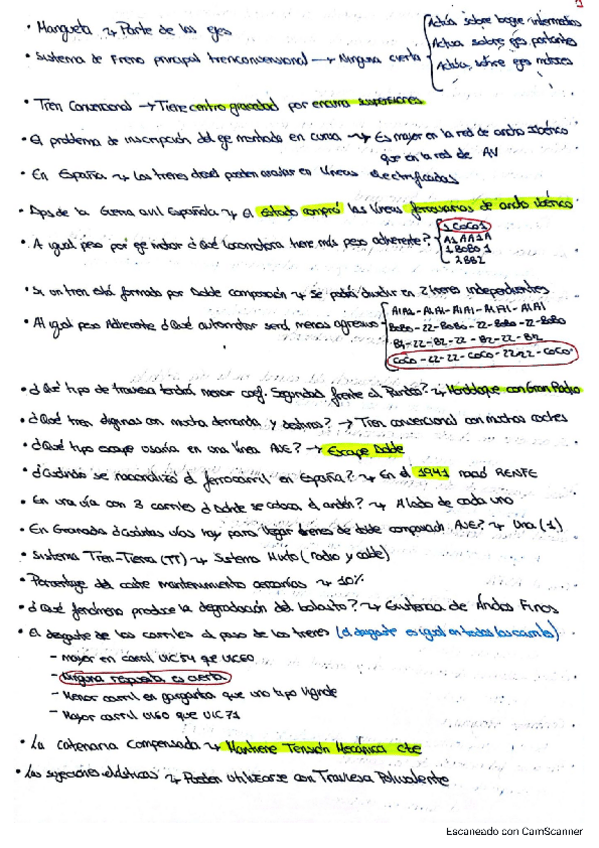 • Mangueta ↳ Parte de los ejes
• Sistema de Freno principal tren convencional → Ninguna cierta
Actúa sobre bogie intermedios
Actua sobre ejes portantes
Actúa sobre ejes motores
• Tren Convencional → Tiene centro gravedad por encima suspensiones
• El problema de inscripción del eje montado en curva ↳ Es mayor en la red de ancho Ibérico
que en la red de AV
• En España ↳ Los trenes diesel pueden en líneas electrificadas
• Dps de la Guerra civil Española ↳ El Estado compró las líneas ferroviarias de ancho ibérico
• A igual peso por eje motor ¿Qué locomotora tiene más peso adherente?
1CoCo1
A1AA1A
1BoBo1
2BB2
• Si un tren está formado por Doble composición ↳ Se podrá dividir en 2 trenes independientes
• Al igual peso Adherente ¿Qué automotor será menos agresivo
A1A1-A1A1-A1A1-A1A1-A1A1
BoBo-22-BoBo-22-BoBo-22-BoBo
B2-22-B2-22-B2-22-B2
CoCo-22-22-CoCo-2222-CoCo
• ¿Qué tipo de traviesa tendrá menor coef. Seguridad frente al Pandeo? ↳ Monobloque con Gran Radio
• ¿Qué tren con mucha demanda y destinos? → Tren convencional con muchos coches
• ¿Qué tipo escape usaría en una línea AVE? → Escape Doble
• ¿Cuándo se nacionalizó el ferrocarril en España? ↳ En el 1941 nació RENFE
• En una vía con 3 carriles ¿Dónde se coloca el andén? ↳ Al lado de cada uno
• En Granada ¿Cuántas vías hay para llegar trenes de doble composición AVE? ↳ Una (1)
• Sistema Tren-Tierra (TT) ↳ Sistema Mixto (radio y cable)
• Porcentaje del coste mantenimiento ↳ 10%
• ¿Qué fenómeno produce la degradación del balasto? ↳ Existencia de Áridos Finos
• El desgaste de los carriles al paso de los trenes (el desgaste es igual en todos los carriles)
- Mayor en carril UIC54 que UIC60
- Ninguna respuesta es cierta
- Menor carril en garganta que uno tipo Vignole
- Mayor carril UIC60 que UIC71
• La catenaria compensada ↳ Mantiene Tensión Mecánica cte
• Las sujeciones elásticas ↳ Pueden utilizarse con Traviesa Polivalente
Escaneado con CamScanner